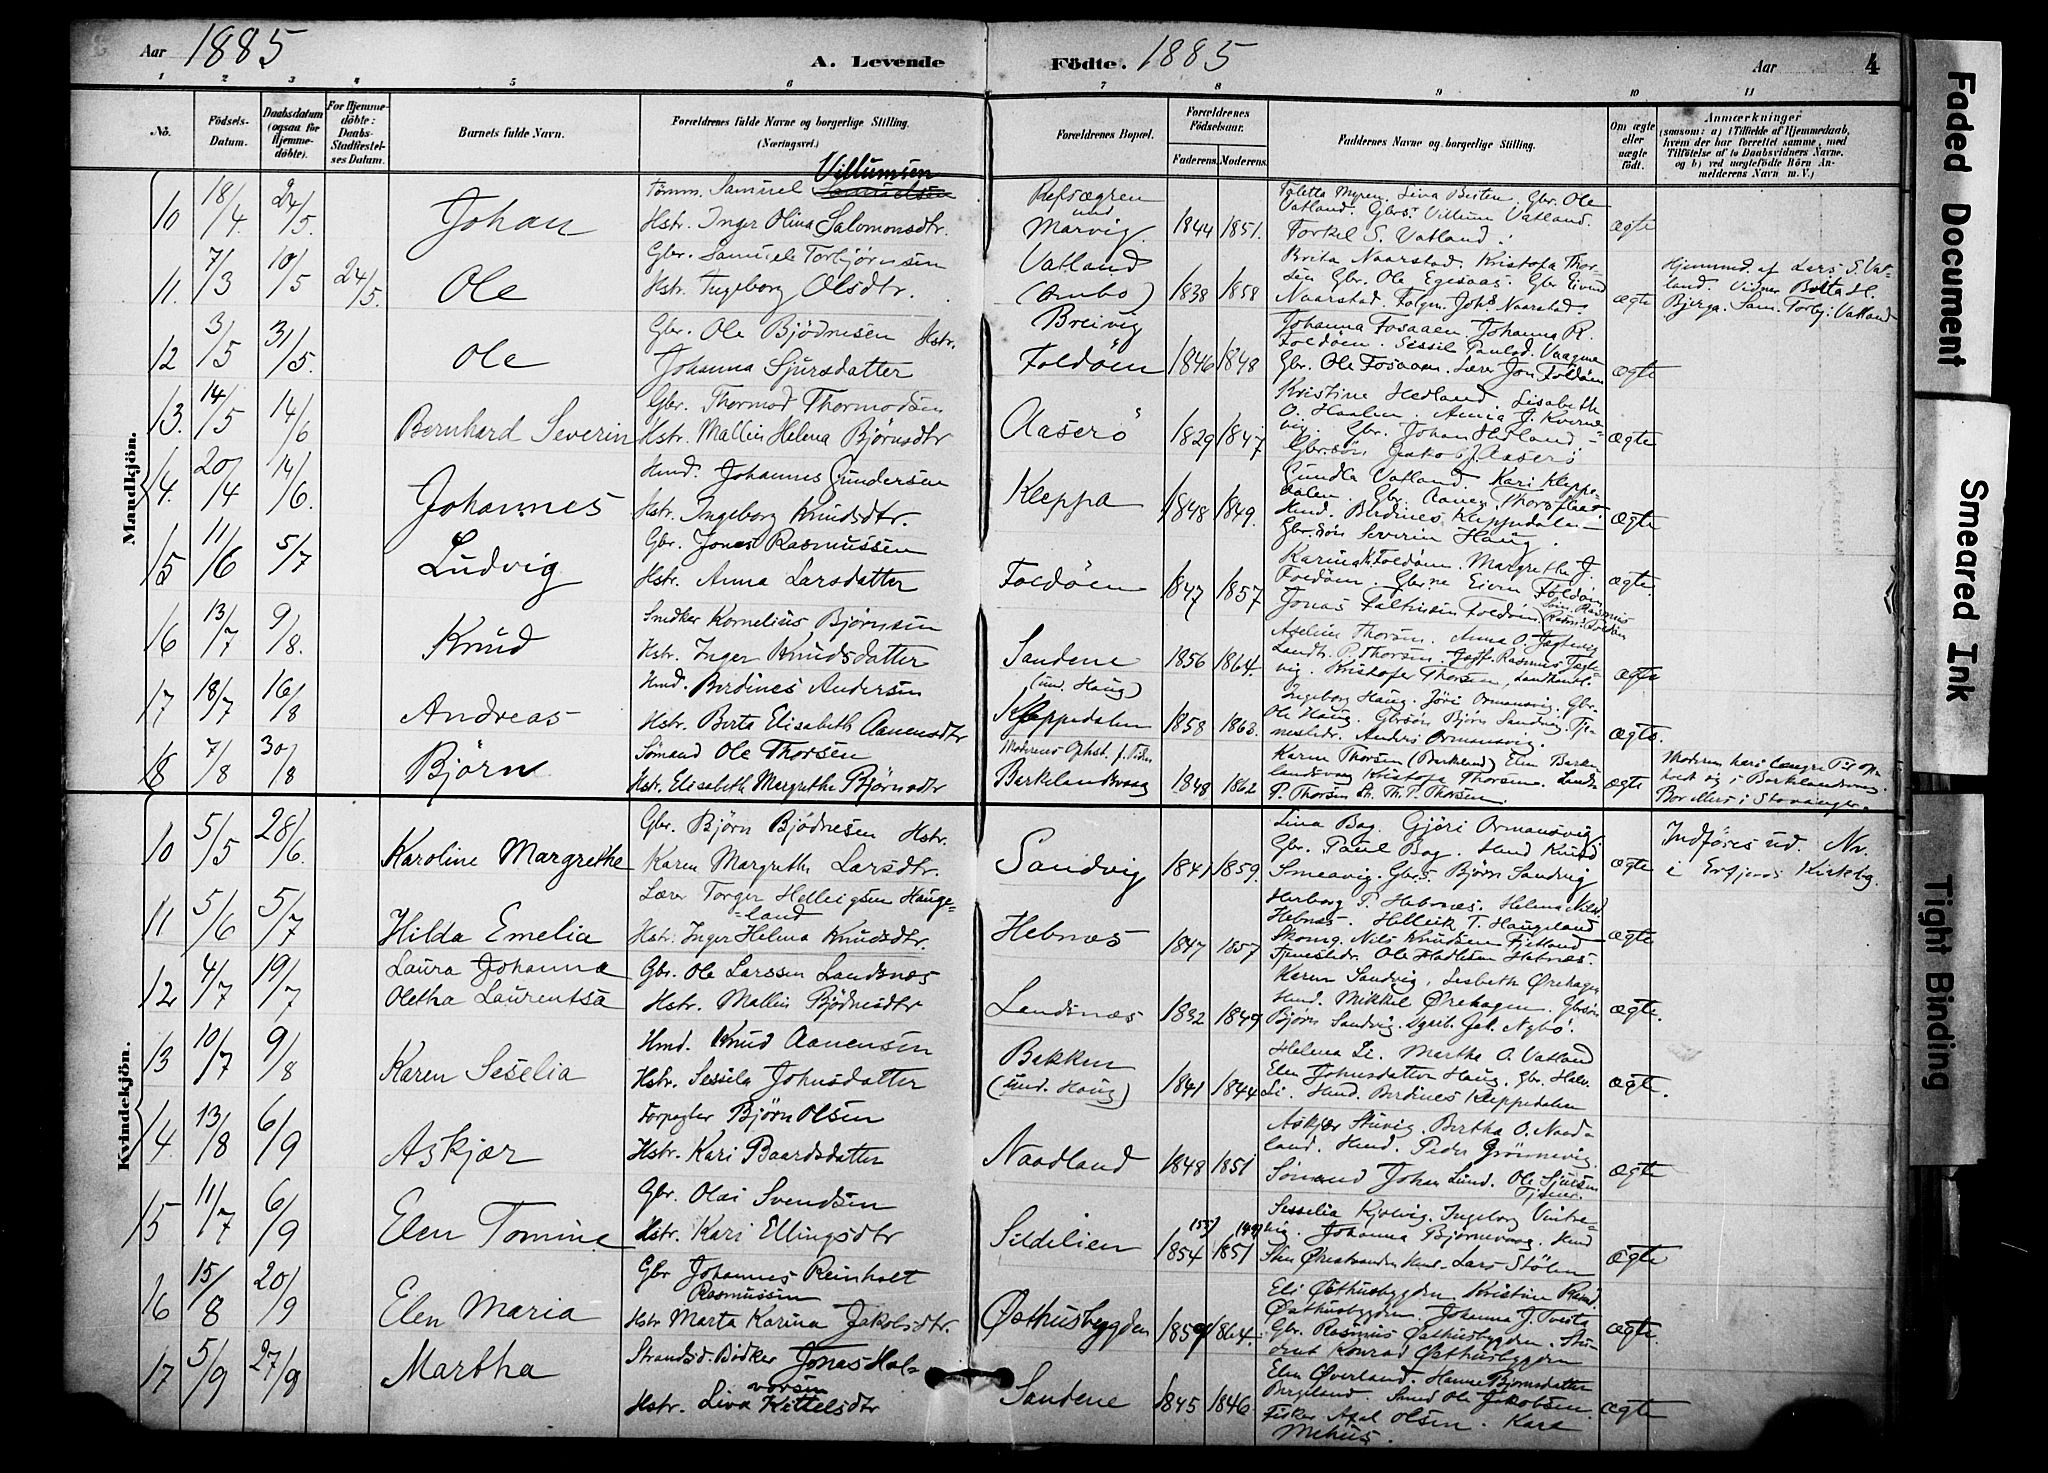 Aar 1885 A. Levende Födte. 1885 Aar 4
1 2 3 4 5 6 7 8 9 10 11
No. Födsels-Datum. Daabsdatum (ogsaa for Hjemmedöbte). For Hjemmedöbte: Daabs-Stadfæstelses Datum. Barnets fulde Navn. Forældrenes fulde Navne og borgerlige Stilling. (Næringsvei.) Forældrenes Bopæl. Forældrenes Födselsaar. Faderens. Moderens. Faddernes Navne og borgerlige Stilling. Om ægte eller uægte födt. Anmærkninger (saasom: a) i Tilfælde af Hjemmedaab, hvem der har forrettet samme, med Tilföielse af to Daabsvidners Navne, og b) ved uægtefödte Börn Anmelderens Navn m. V.)
Mandkjön.
10 18/4 24/5 Johan
Tømm. Samuel Samuelsen Villumsen
Hstr. Inger Olina Salomonsdtr.
Refsægren und Marvig. 1844 1851.
Tolette Myren. Liva Besten. Gbr. Ole
Vatland. Gbrs. Villum Vatland.
Torkel S. Vatland. ægte
11. 7/3 10/5 24/5. Ole
Gbr. Samuel Torbjörnsen
Hstr. Ingeborg Olsdtr.
Vatland (Ombo) 1838 1858
Brita Naarstad. Kristofa Thor-
sen Gbr. Ole Egesaas. Gbr Eivind
Naarstad. Folgm. Johs Naarstad. ægte
Hjemmed. af Lars S. Vat-
land. Vidner Berta H.
Bjerga. Sam. Torbj. Vatland
12 3/5 31/5. Ole
Gbr. Ole Bjödnesen Hstr.
Johanna Sjursdatter
Breivig Foldöen 1846 1848
Johanna Fosaaen. Johanna R.
Foldöen. Sessil Paulsd. Vaagene
Gbr. Ole Fosaaen. Lærer Jon Foldöen ægte
13. 14/5 14/6 Bernhard Severin
Gbr. Thormod Thormodsen
Hstr. Mallin Helena Björnsdtr
Aaserö 1829 1847
Kristine Hedland. Lisabeth
O. Haalen. Anna J. Kverne-
vig. Gbr. Johan Hedland -
Gbrsön Jakob J. Aaserö ægte
14. 20/4 14/6. Johannes
Hmd. Johannes Gundersen
Hstr. Ingeborg Knudsdtr.
Kleppa 1848 1849.
Gundla Vatland. Kari Kleppe-
dalen. Gbr. Aanen Thorsflaat
Hmd. Berdines Kleppedalen -
Gbr. sön Severin Haug. ægte
15 11/6 5/7 Ludvig
Gbr. Jonas Rasmussen
Hstr. Anna Larsdatter
Foldöen 1847 1857
Karina K. Foldöen. Margrethe J.
Foldöen. Gbrne Eivin Foldöen
Jonas Foldöen ægte.
16 13/7 9/8. Knud
Snedker Kornelius Björnsen
Hstr. Inger Knudsdatter
Sandene (und. Haug) 1856 1864.
Aseline Thorsen. Anna O. Jegtevig
Landh. P. Thorsen. Rasmus Jegte-
vig. Kristofer Thorsen, Landhandl. ægte
17 18/7 16/8 Andreas
Hmd. Berdines Andersen
Hstr. Berta Elisabeth Aanensdtr
Kleppedalen 1858 1863.
Ingeborg Haug. Jöri Ormansvig. Gbr.
Ole Haug. Gbrsön Björn Sandvig. Tje-
nestedr. Anders Ormansvig. ægte.
18 7/8 30/8 Björn
Sömand Ole Thorsen
Hstr. Elisabeth Margrethe Björnsdtr
Moderens Ophst. f. Tiden Berkelandsvaag 1848 1862
Karen Thorsen (Berkland) Elen Berke-
landsvaag Kristofa Thorsen. Landh.
P. Thorsen. Th. P. Thorsen. ægte
Moderen har længre Tid op-
holdt sig i Berklandsvaag.
Bor ellers i Stavanger.
Kvindekjön.
10 5/5 28/6. Karoline Margrethe
Gbr. Björn Bjödnesen Hstr.
Karen Margrethe Larsdtr.
Sandvig 1841 1859.
Lina Bag. Gjöri Ormansvig
Gbr. Paul Bag. Hmd Knud
Smeavig. Gbrs. Björn Sandvig ægte
Indföres ud. Nr.
i Erfjords Kirkebg.
11 5/6 5/7 Hilda Emelia
Lærer Torger Helleigsen Hauge-
land
Hstr. Inger Helena Knudsdtr.
Hebnæs 1847 1857
Herborg T. Hebnæs. Helena Nilsd.
Hebnæs. Helleik T. Haugeland
Skomg. Nils Knudsen Fjetland
Tjenestedr. Ole Hebnæs. ægte
12 4/7 19/7 Laura Johanna
Oletha Laurentsa
Gbr. Ole Larssen Landsnæs
Hstr. Mallin Bjödnesdtr
Landsnæs 1832 1849
Karen Sandvig, Lisbeth Ørehagen
Hmd. Mikkel Ørehagen. Gbrsön
Björn Sandvig. Dgarb. Jak. Nybö. ægte.
13 10/7 9/8 Karen Seselia
Hmd. Knud Aanensen
Hstr. Sessela Johnsdatter
Bakken (und. Haug) 1841 1844
Helena Li. Martha O. Vatland
Elen Johnsdatter Haug. Gbr. Halv.
Li. Hmd. Berdines Kleppedalen ægte.
14. 13/8 6/9 Askjær
Forpagter Björn Olsen
Hstr. Kari Baardsdatter
Naadland 1848 1851
Askjær Stuvig. Bertha O. Naad-
land. Hmd. Peder Grönnevig.
Sömand Johan Lund. Ole Sjursen
Tjener. ægte
15 11/7 6/9 Elen Tomine
Gbr. Olai Svendsen
Hstr. Kari Ellingsdtr
Sildelien (55) 1854 1851
Sesselia Kjölvig. Ingeborg Vintre-
vig. Johanna Björnevaag. Hmd
Sten Ørestranden Hmd. Lars Stölen ægte
16 15/8 20/9 Elen Maria
Gbr Johannes Reinholt
Rasmussen
Hstr Marta Karina Jakobsdtr.
Østhusbygden 1859 1864.
Eli Østhusbygden. Kristine Rasmd.
Østhusbygden. Johanna J. Tveita
Gbr. Rasmus Østhusbygden. Stu-
dent Konrad Østhusbygden ægte.
17 5/9 27/9 Martha
Strandsd. Bödker Jonas Hal-
vorsen
Hstr. Liva Kittelsdtr
Sandene 1845 1846
Elen Øverland. Hanne Björnsdatter
Bergeland. Smed Ole Jakobsen.
Fisker Axel Olsen. Kare
Mehus. ægte
Faded Document
Smeared Ink
Tight Binding